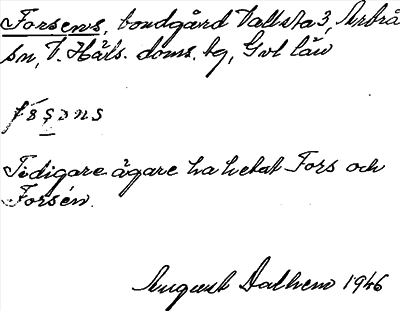 Forsens, bondgård Vallsta 3, Arbrå
sn, V. Häls. doms. hg, Gvl län
Tidigare ägare ha hetat Fors och
Forsén.
August Dalhem 1946